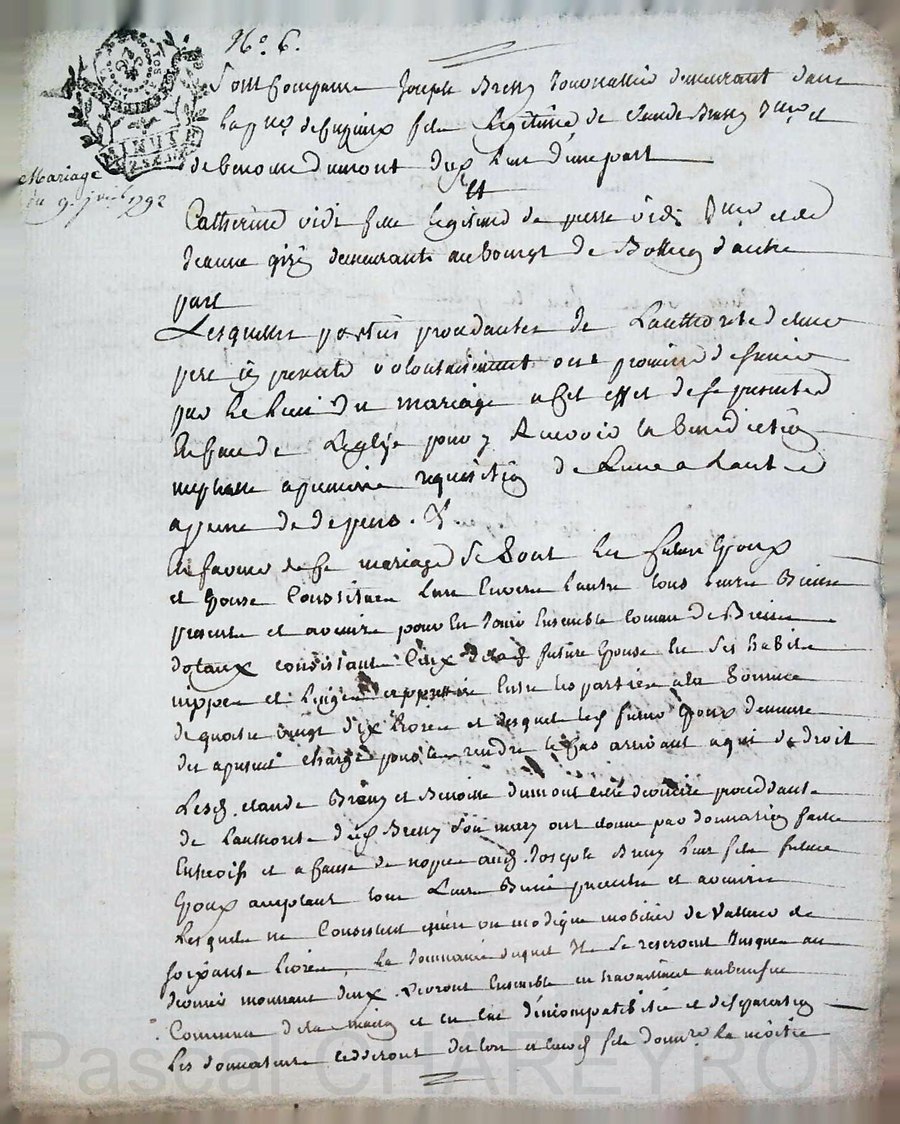 N.° 6.
MINUTE
Mariage
du 9. 1792
Sont Comparus Joseph Breny Journallier demeurant dans
la fils Legitime de Claude Breny et
de benoitte Dumont d'une part
Et
Catherine vidi fille legitime de pierre vidi et de
Jeanne demeurante au bourgt de d'autre
part
Lesquelles parties procedantes de Lauthorité de leurs
pere icy presents volontairement ont promis de s'unir
par le lien du mariage a Cet effet de se presenter
En face de L'eglise pour y Recevoir la Benediction
nuptialle a premiere requisition de Lune a Lautre
a peine de depens.
En faveur de Ce mariage Se Sont les futurs Epoux
et Epouse Constitués Lun Envers Lautre tous leurs Biens
presents et avenirs pour En Jouir Ensemble comme de Biens
dotaux consistant Ceux de lad future Epouse En Ses habits
nippes et Linges entre les parties a la Somme
de quatre vingt dix Livres et desquels led futur Epoux demeure
des a present chargé pour les rendre le Cas arrivant a qui de droit
Lesd. Claude Breny et Benoitte Dumont procedante
de Lauthorité dud Breny Son mary ont donné par donnation faitte
Entre vifs et a Cause de noppce aud. Joseph Breny Leur fils futur
Epoux acceptant tous Leurs Biens presents et avenirs
Lesquels ne Consistent qu'en un modique mobilier de valleur de
soixante Livres, La Jouissance duquel Ils Se reservent Jusques au
dernier mourant d'eux. vivront Ensemble en travaillant au benefice
Commun de la maison et en Cas d'incompatibilité et de separation
Les donnateurs cedderont des lors aud fils la moitié
Pascal CHAREYRON